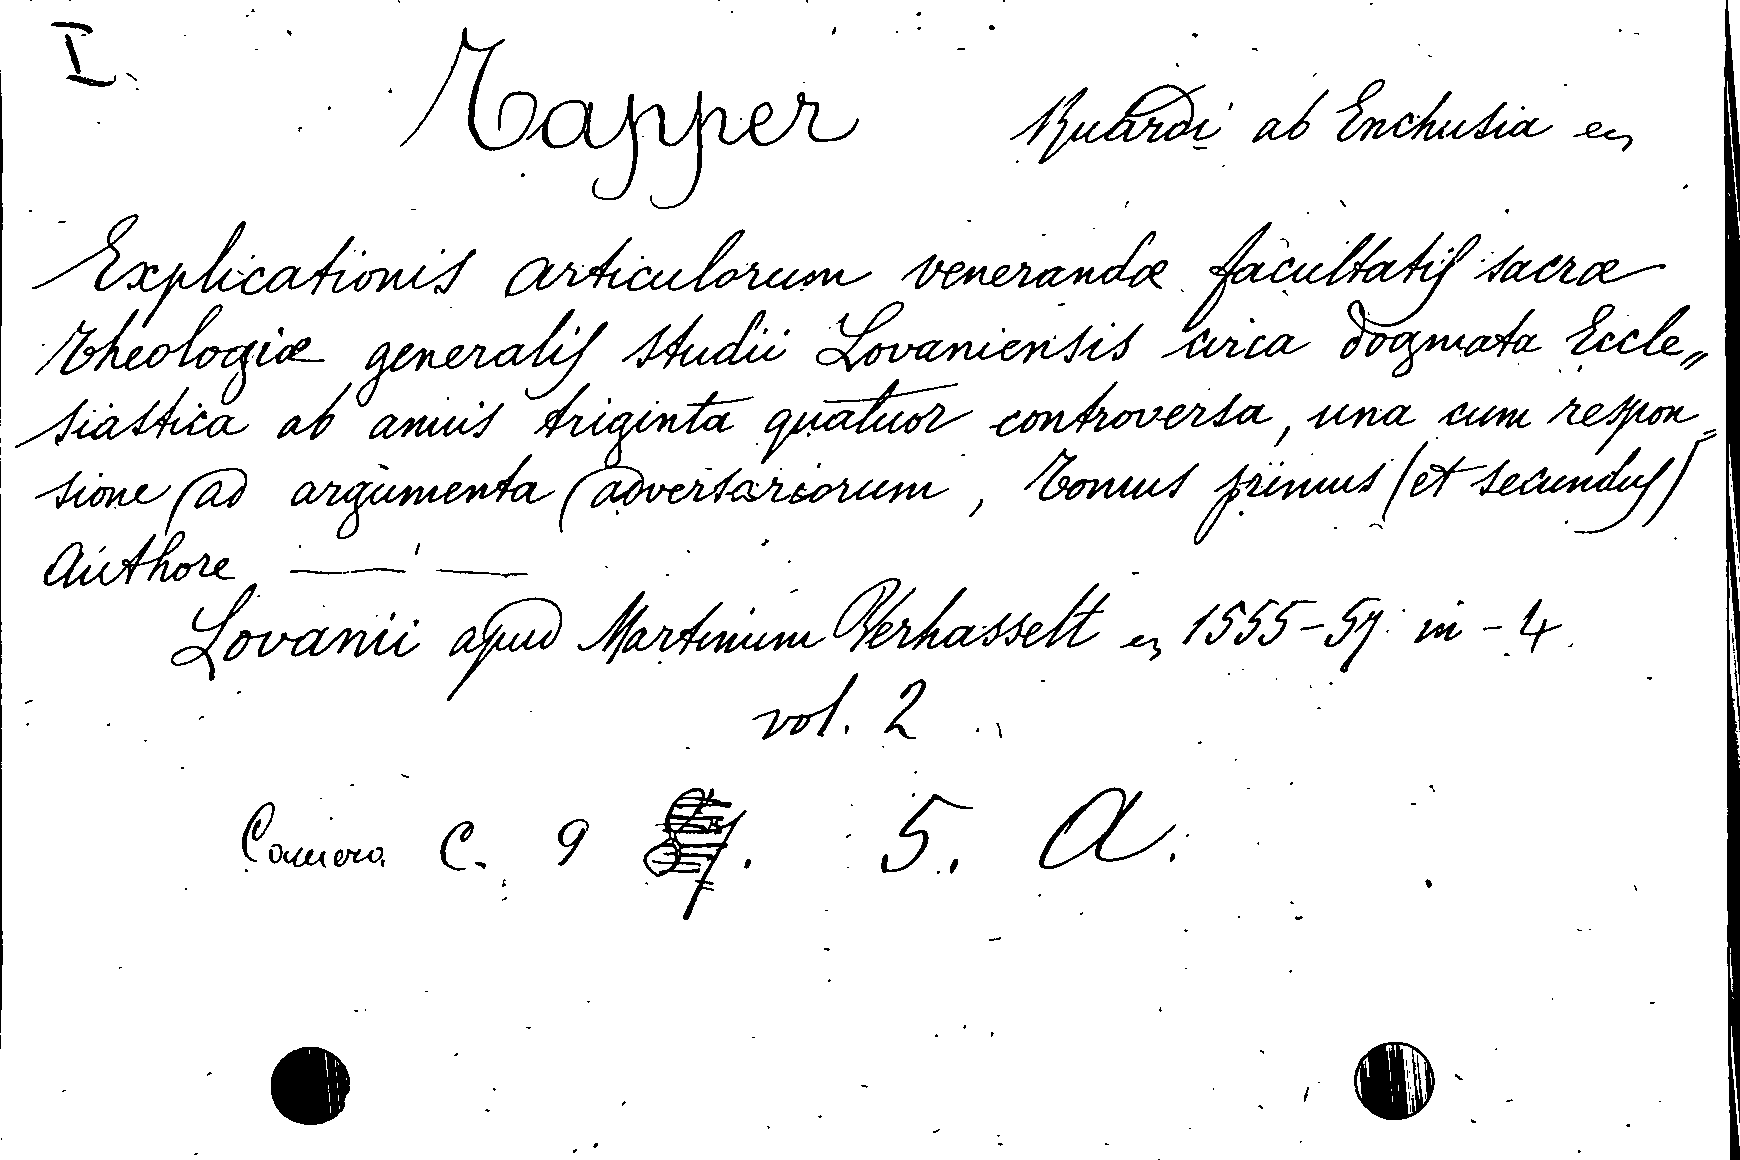 I.
Tapper Ruardi ab Enchusia en
Explicationis articulorum venerandæ facultatis sacræ
theologiæ generalis studii Lovaniensis circa dogmata Eccle„
siastica ab annis triginta quatuor controversa, una cum respon„
sione ad argumenta adversariorum, tomus primus (et secundus)
Authore — —
Lovanii apud Martinum Verhasselt en 1555-57 in-4.
vol. 2
Camera C. 9 . 5. A.